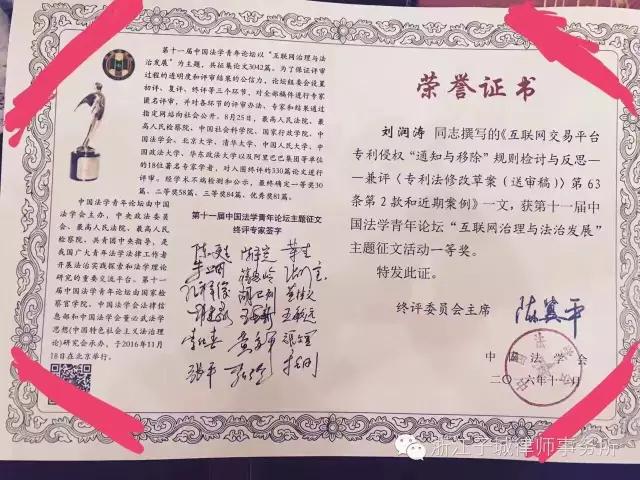 第十一届中国法学青年论坛以“互联网治理与法
治发展”为主题,共征集论文3042篇。为了保证评审
过程的透明度和评审结果的公信力,论坛组委会设置
初评、复评、终评等三个环节,对全部稿件进行专家
匿名评审,并对各环节的评审办法、专家和结果通过
指定网站向社会公开。8月25日,最高人民法院、最
高人民检察院、中国社会科学院、国家行政学院、中国
法学会、北京大学、清华大学、中国人民大学、中
国政法大学、华东政法大学以及阿里巴巴集团等单位
的18位著名专家学者,对入围终评的330篇论文进行
评审。经学术不端检测和公示,最终确定一等奖30
篇、二等奖58篇、三等奖84篇、优秀奖81篇。
中国法学青年论坛由中国
法学会主办,中央政法委员
会、最高人民法院、最高人民
检察院、共青团中央指导,是
我国广大青年法学法律工作者
开展法治实践探索和法学理论
研究的重要交流平台。第十一
届中国法学青年论坛由国家检
察官学院、中国法学会法律信
息部和中国法学会董必武法学
思想(中国特色社会主义法治理
论)研究会承办,于2016年11月
18日在北京举行。
第十一届中国法学青年论坛主题征文
终评专家签字
荣誉证书
刘润涛 同志撰写的《互联网交易平台
专利侵权“通知与移除”规则检讨与反思——
—兼评〈专利法修改草案(送审稿)〉第 63
条第 2 款和近期案例》一文,获第十一届中
国法学青年论坛“互联网治理与法治发展”
主题征文活动一等奖。
特发此证。
终评委员会主席 陈冀平
中国法学会
二〇一六年十一月
浙江子城律师事务所